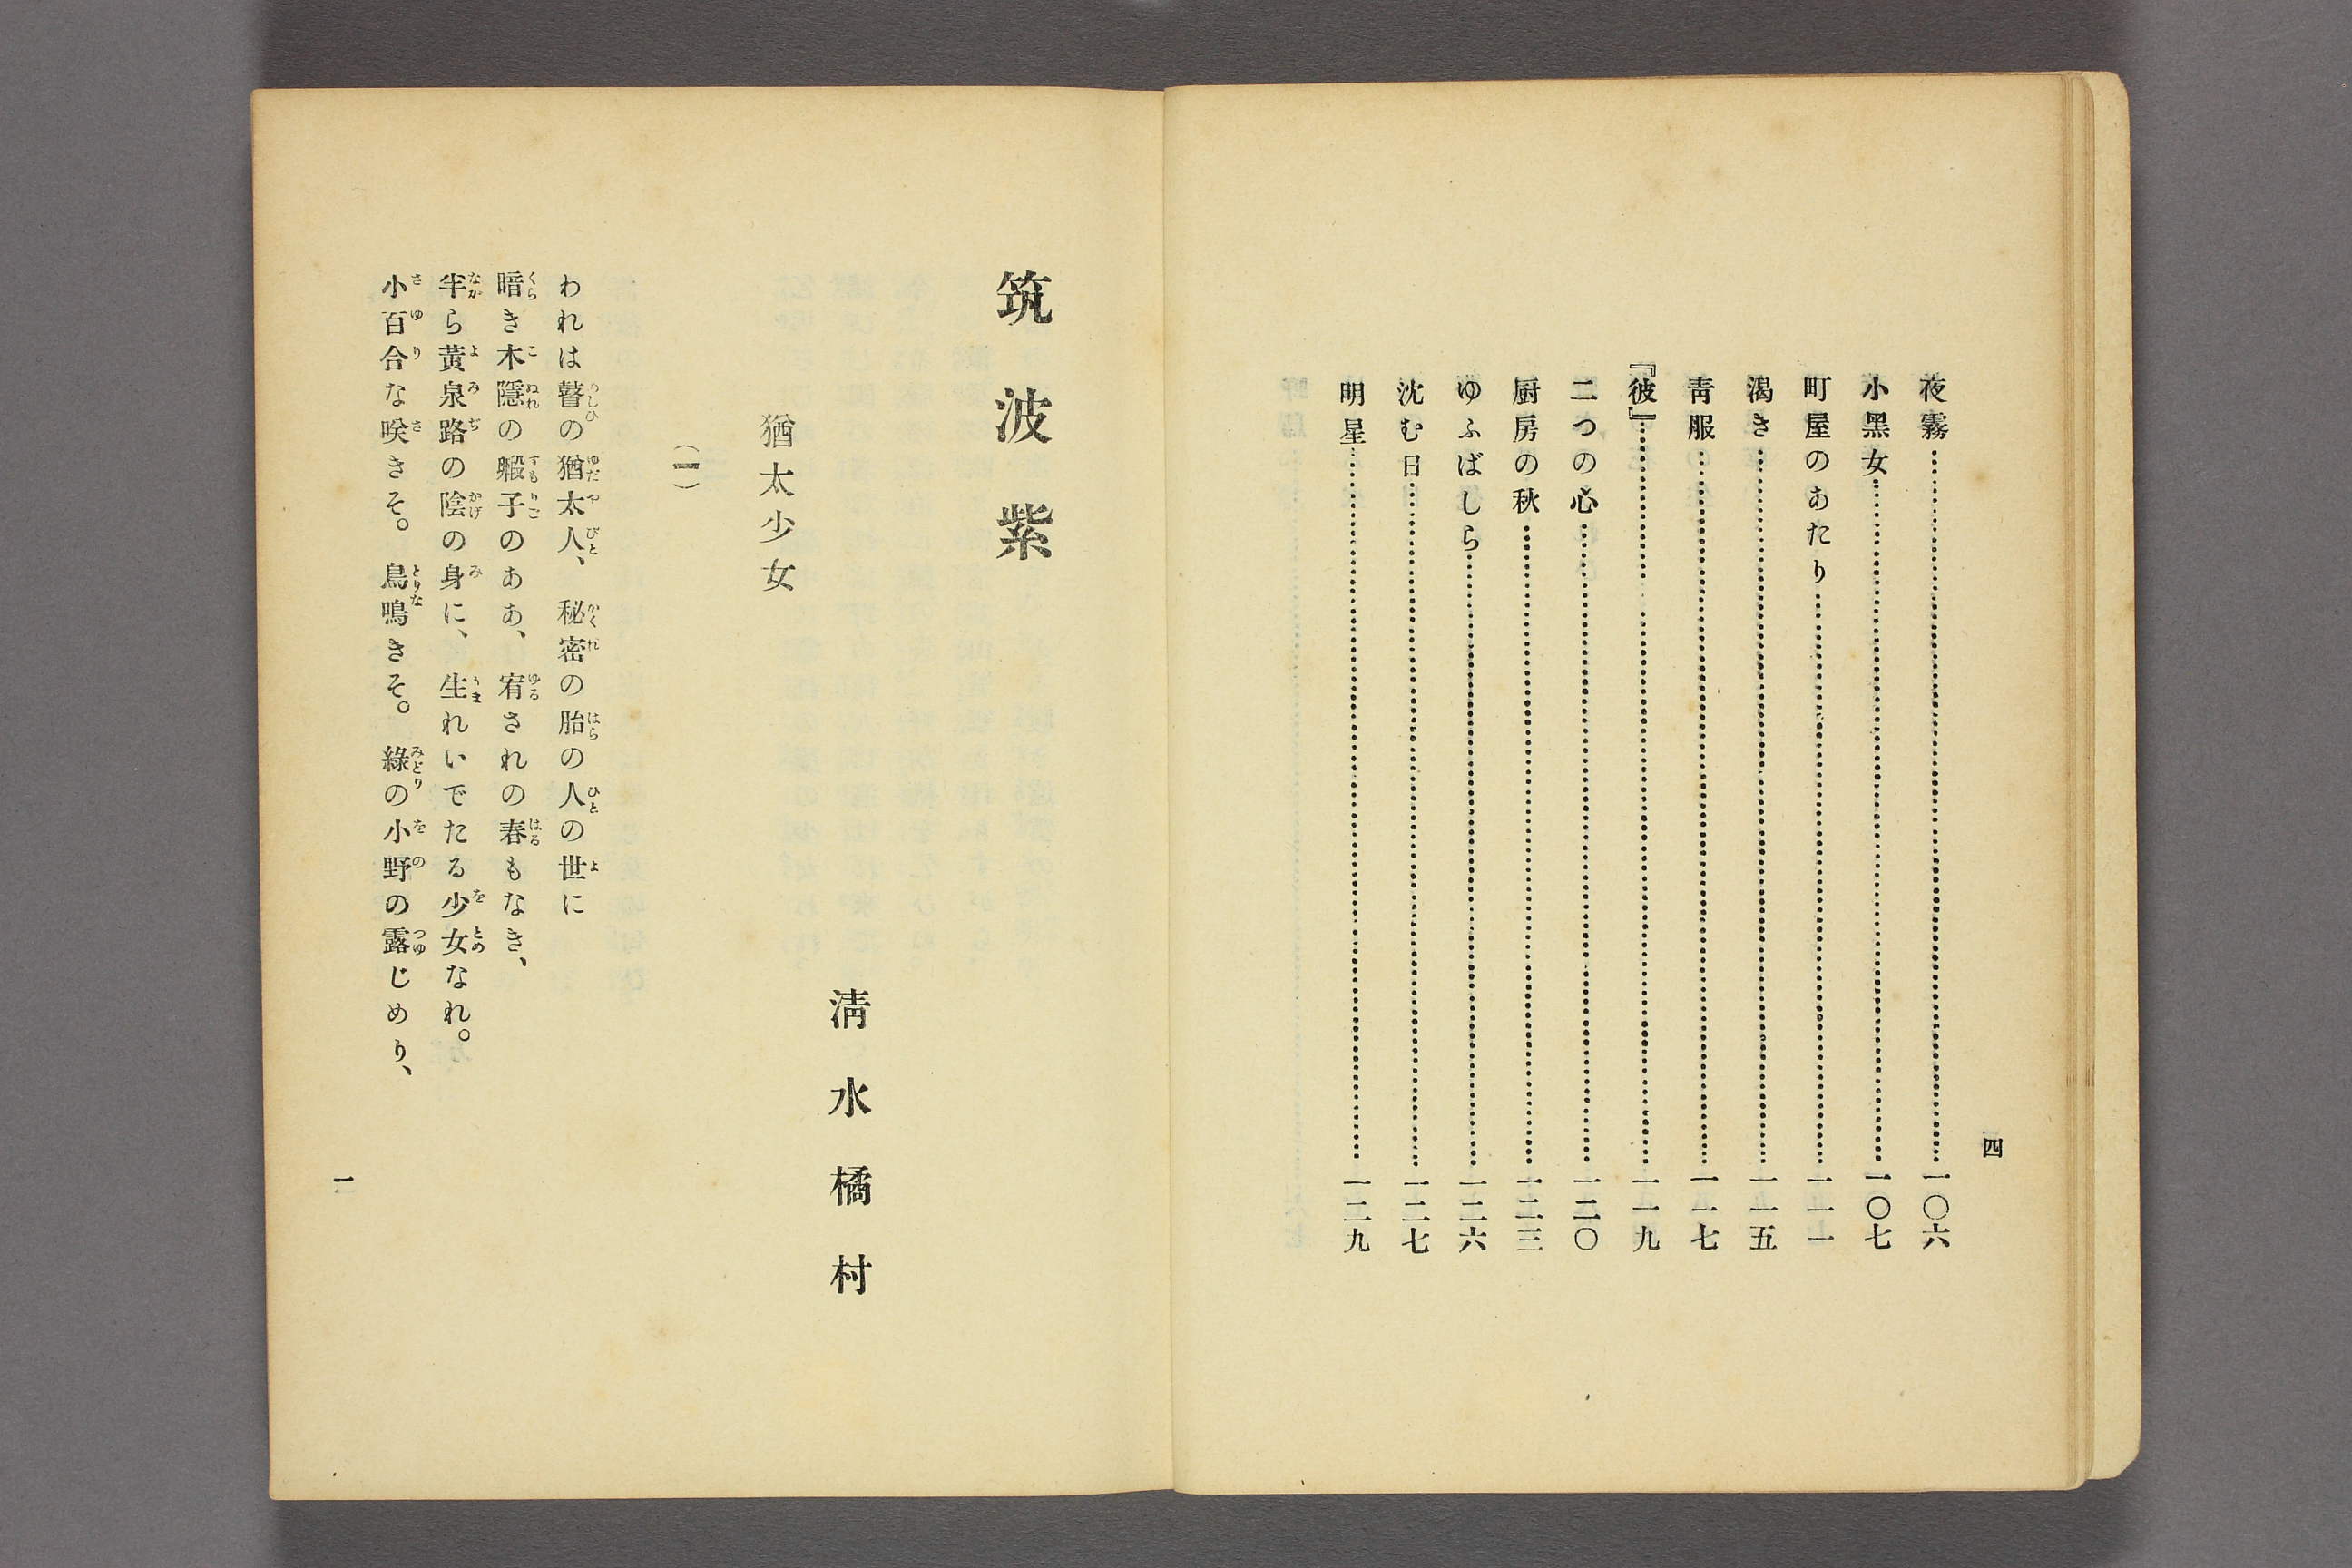 四
夜霧……一〇六
小黑女……一〇七
町屋のあたり……一一一
渴き……一一五
靑服……一一七
『彼』……一一九
二つの心……一二〇
厨房の秋……一二三
ゆふばしら……一二六
沈む日……一二七
明星……一二九
筑波紫
淸水橘村
猶太少女
(一)
われは瞽の猶太人、秘密の胎の人の世に
暗き木隱の㲉子のああ、宥されの春もなき、
半ら黃泉路の陰の身に、生れいでたる少女なれ。
小百合な咲きそ。鳥鳴きそ。綠の小野の露じめり、
一